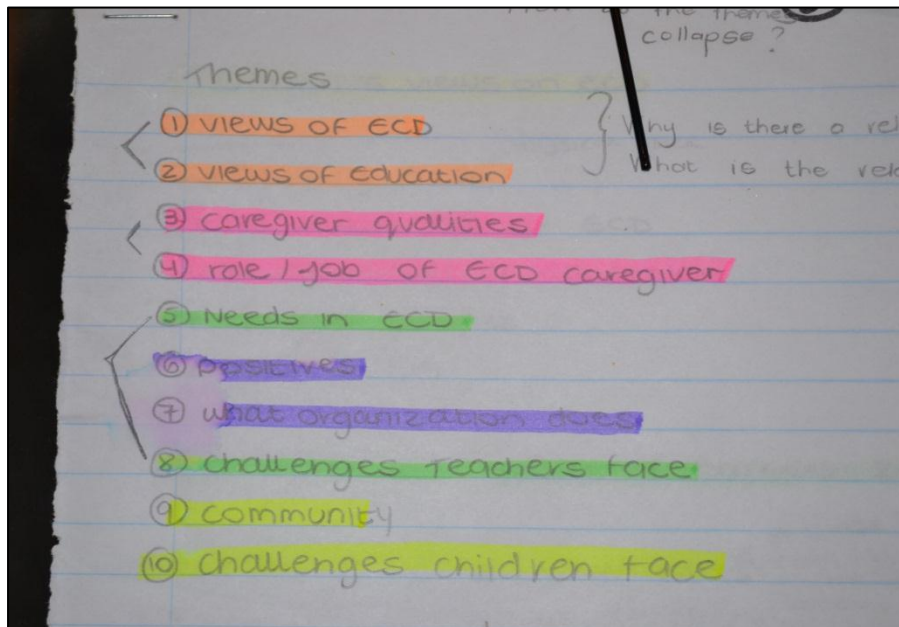 the themes
collapse?
Themes
① views of ECD
② views of Education
③ caregiver qualities
④ role/job of ECD caregiver
⑤ Needs in ECD
⑥ positives
⑦ what organization does
⑧ challenges Teachers face
⑨ community
⑩ challenges children face
Why is there a rel
What is the rela